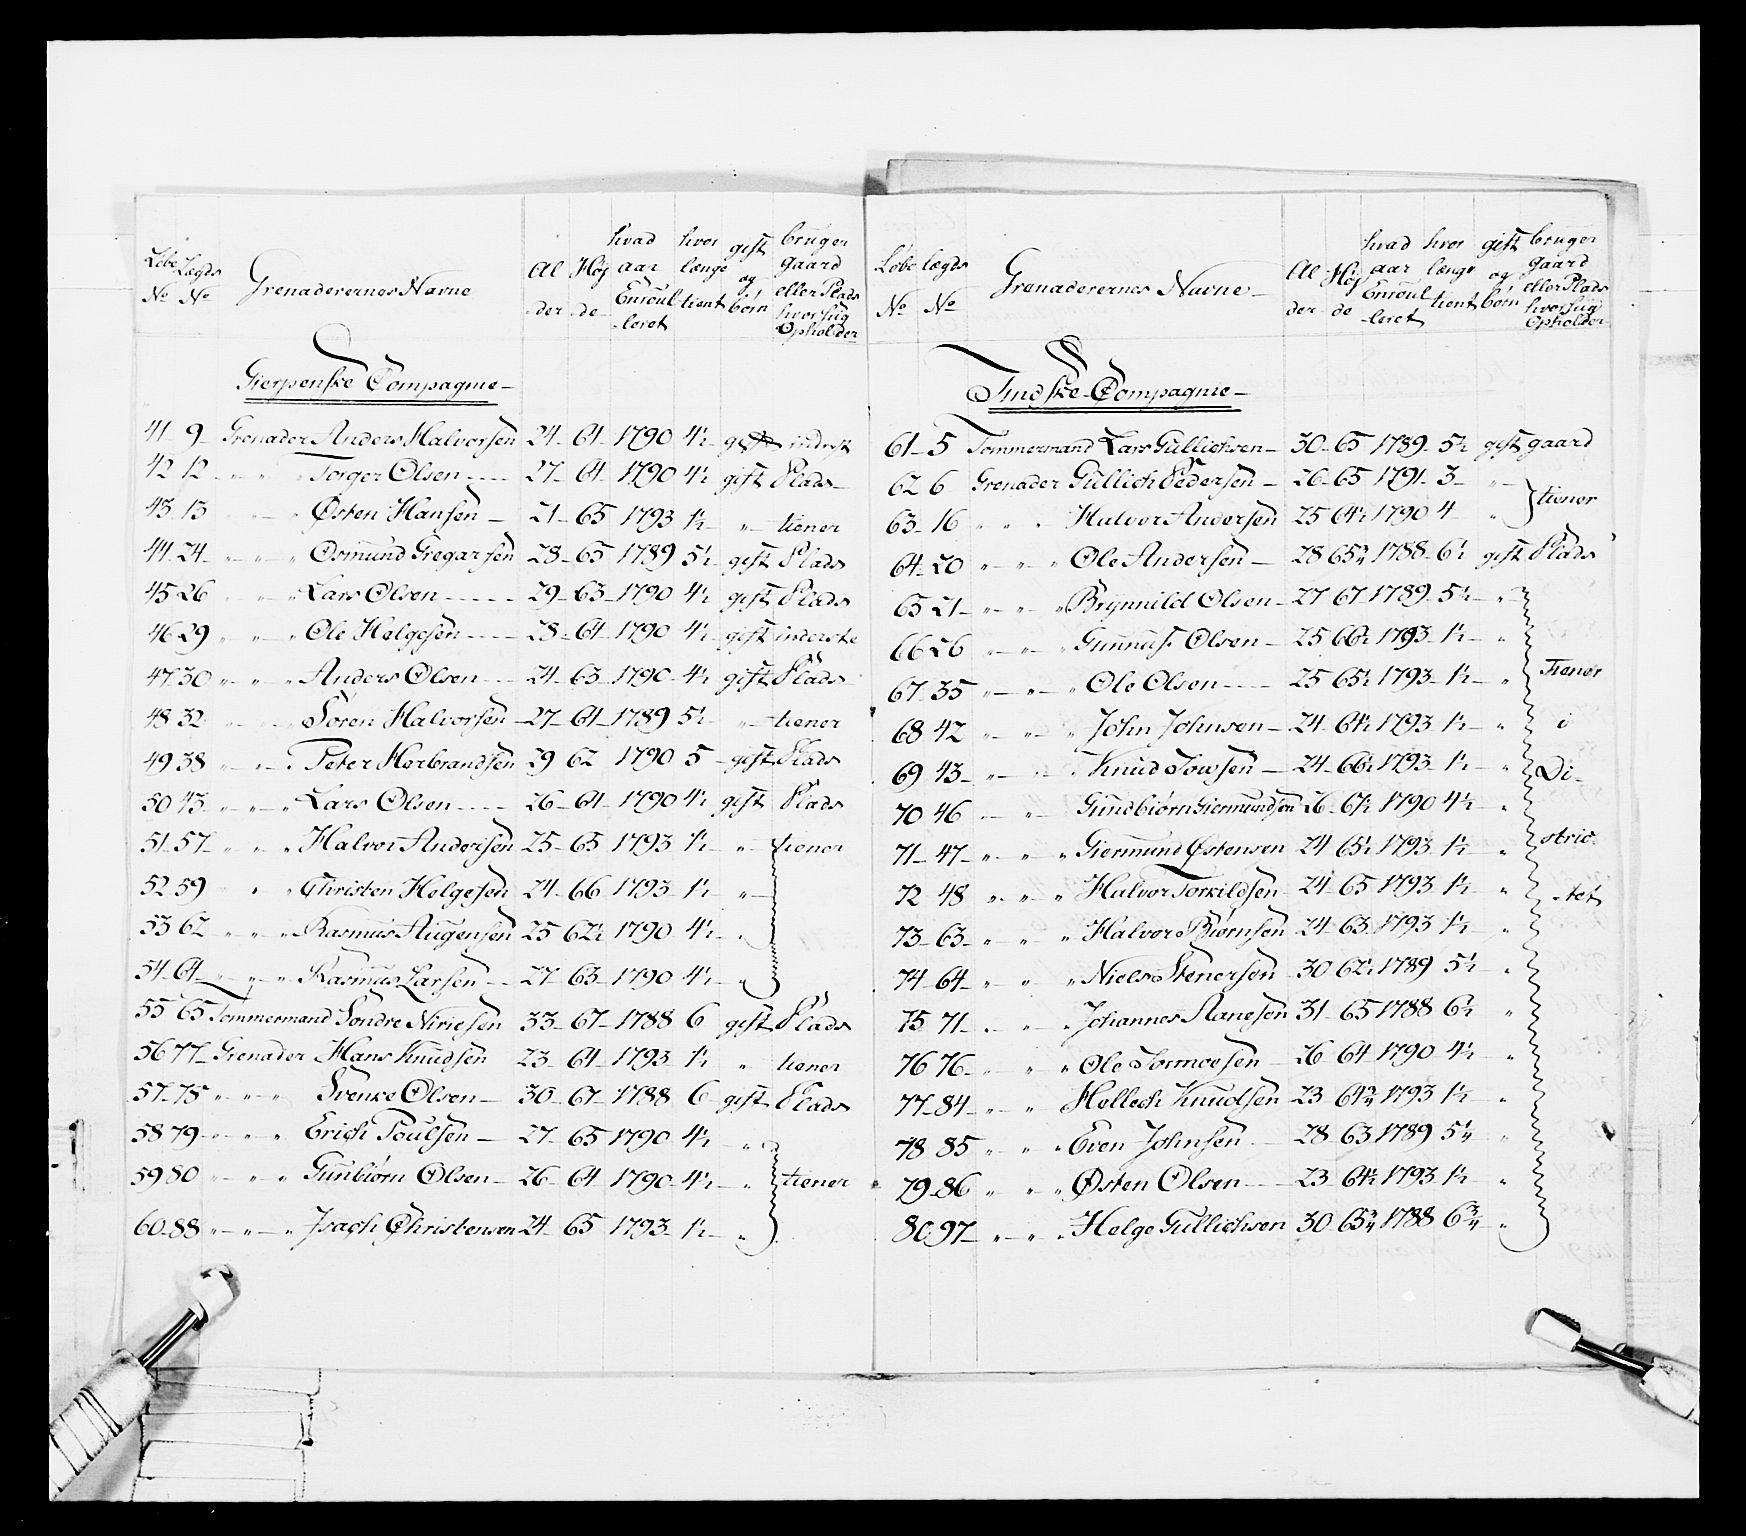 Løbe No Lægds No Grenaderernes Navne Al der Høj de hvad aar Enroulleret hvor længe tient gift og børn bruger gaard eller Plads hvor sig Opholder
Gierpenske Compagnie
41 9 Grenader Anders Halvorsen 24 61 1790 4½ gift inderst
42 12 " " " Torger Olsen 27 61 1790 4½ gift Plads
43 13 " " Østen Hansen 21 65 1793 1½ " tiener
44 24 " " " Osmund Gregarsen 28 65 1789 5½ gift Plads
45 26 " " " Lars Olsen 29 63 1790 4½ gift Plads
46 29 " " " Ole Helgesen 28 61 1790 4½ gift inderste
47 30 " " " Anders Olsen 24 63 1790 4½ gift Plads
48 32 " " " Søren Halvorsen 27 61 1789 5½ " tiener
49 38 " " " Peter Herbrandsen 29 62 1790 5 gift Plads
50 43 " " " Lars Olsen 26 61 1790 4½ gift Plads
51 57 " " " Halvor Andersen 25 65 1793 1½ " tiener
52 59 " " " Christen Helgesen 24 66 1793 1½ "
53 62 " " " Rasmus Augensen 25 62½ 1790 4½ "
54 64 " " " Rasmus Larsen 27 63 1790 4½ "
55 65 Tømmermand Søndre Niriesen 33 67 1788 6 gift Plads
56 77 Grenader Hans Knudsen 23 61 1793 1½ " tiener
57 78 " " " Svenke Olsen 30 67 1788 6 gift Plads
58 79 " " " Erich Poulsen 27 65 1790 4½ "
59 80 " " " Gunbiørn Olsen 26 61 1790 4½ " tiener
60 88 " " " Isach Christensen 24 65 1793 1½ "
Løbe No lægds No Grenaderernes Navne Al der Høj de hvad aar Enroulleret hvor længe tient gift og børn bruger gaard eller Plads hvor sig Opholder
Tindske Compagnie
61 5 Tømmermand Lars Gullichsen 30 65 1789 5½ gift gaard
62 6 Grenader Gullich Pedersen 26 65 1791 3 "
63 16 " " " Halvor Andersen 25 64½ 1790 4 " tiener
64 20 " " " Ole Andersen 28 65¾ 1788 6½ gift Plads
65 21 " " " Brynnild Olsen 27 67 1789 5½ "
66 26 " " Gunnuf Olsen 25 66½ 1793 1½ "
67 35 " " " Ole Olsen 25 65½ 1793 1½ " Tiener
68 42 " " " John Johnsen 24 64½ 1793 1½ " i
69 43 " " Knud Towsen 24 66½ 1793 1½ " Di-
70 46 " " Gundbiørn Giermundsen 26 67½ 1790 4½ "
71 47 " " " Giermund Østensen 24 65½ 1793 1½ " stric
72 48 " " " Halvor Torkildsen 24 65 1793 1½ " tet
73 63 " " " Halvor Biørnsen 24 63 1793 1½ "
74 64 " " " Niels Stenersen 30 62½ 1789 5½ "
75 71 " " " Johannes Aanesen 31 65 1788 6½ "
76 76 " " " Ole Tormoesen 26 64 1790 4½ "
77 84 " " " Hellech Knudsen 23 64¾ 1793 1½ "
78 85 " " " Even Johnsen 28 63 1789 5¼ "
79 86 " " " Østen Olsen 23 64½ 1793 1½ "
80 97 " " " Helge Gullichsen 30 65¾ 1788 6¾ "